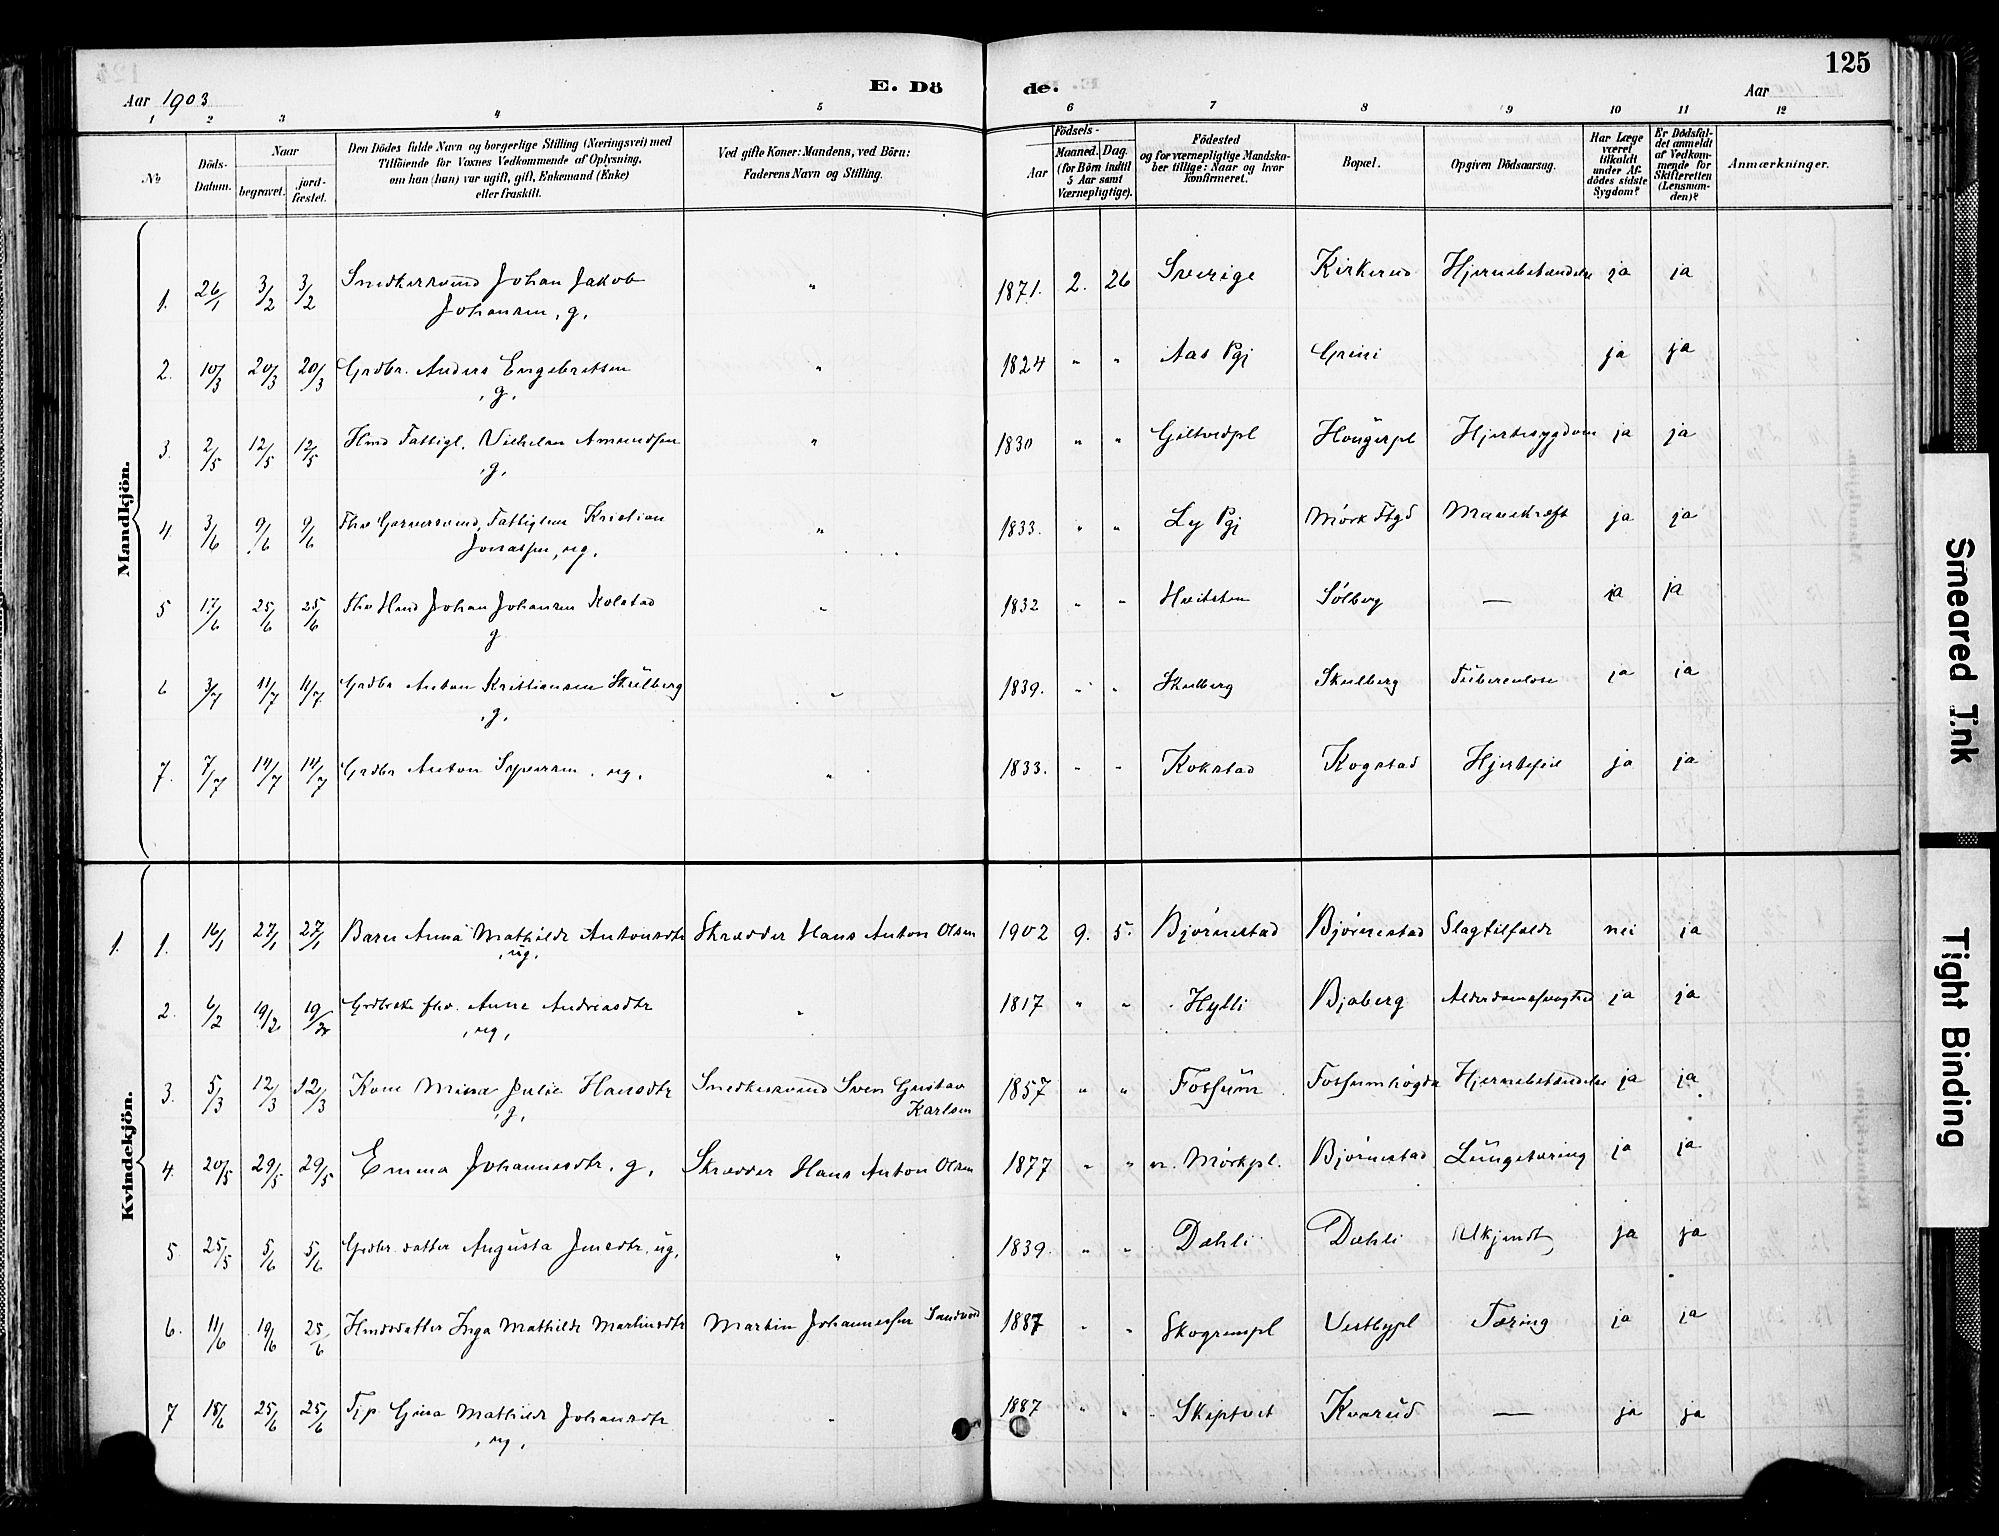 125
Aar 1903
E. Dö
de.
Aar
1 2 3 4 5 6 7 8 9 10 11 12
No
Döds-Datum.
Naar
begravet.
jord-fæstet.
Den Dödes fulde Navn og borgerlige Stilling (Næringsvei) med
Tilföiende for Voxnes Vedkommende af Oplysning,
om han (hun) var ugift, gift, Enkemand (Enke)
eller fraskilt.
Ved gifte Koner: Mandens, ved Börn:
Faderens Navn og Stilling.
Födsels-
Aar
Maaned. Dag.
(for Börn indtil
5 Aar samt
Værnepligtige).
Födested
og for værnepligtige Mandska-
ber tillige: Naar og hvor
konfirmeret.
Bopæl.
Opgiven Dödsaarsag.
Har Læge
været
tilkaldt
under Af-
dödes sidste
Sygdom?
Er Dödsfal-
det anmeldt
af Vedkom-
mende for
Skifteretten
(Lensman-
den)?
Anmærkninger.
Mandkjön.
1. 26/1 3/2 3/2 Snedkersvend Johan Jakob " 1871. 2. 26 Sverige Kirkerud Hjernebetændelse ja ja
Johansen, g,
2. 10/3 20/3 20/3 Grdbr. Anders Engebretsen " 1824 " " Aas Pgj Grini ja ja
, g,
3. 2/5 12/5 12/5 Hmd Fattigl. Vilhelm Amundsen " 1830 " " Giltvedpl Haugerpl Hjertesygdom ja ja
, g,
4. 3/6 9/6 9/6 Fhv Garversvend, Fattiglem Kristian " 1833. " " Ly Pgj Mørk Ftgd Mavekræft ja ja
Jonassen, ug,
5 17/6 25/6 25/6 Fhv Hmd Johan Johansen Kolstad " 1832 " " Hvitsten Sølberg — ja ja
g
6 3/7 11/7 11/7 Grdbr Anton Kristiansen Skulberg " 1839. " " Skulberg Skulberg Tuberculose ja ja
, g,
7. 7/7 14/7 14/7 Grdbr Anton Syversen, ug, " 1833. " " Kokstad Kogstad Hjertefeil ja ja
Kvindekjön.
1. 1. 16/1 27/1 27/1 Barn Anna Mathilde Antonsdtr Skrædder Hans Anton Olsen 1902 9. 5. Bjørnestad Bjørnestad Slagtilfælde nei ja
, ug,
2. 6/2 19/2 19/2 fhv. Anne Andreasdtr " 1817 " " Hylli Bjaberg Alderdomssvaghed ja ja
, ug,
3. 5/3 12/3 12/3 Kone Mina Julie Hansdtr Snedkersvend Sven Gustav 1857 " " Fossum Fossumhøgda Hjernebetændelse ja ja
, g, Karlsen
4. 20/5 29/5 29/5 Emma Johannesdtr. g, Skrædder Hans Anton Olsen 1877 " " n. Mørkpl. Bjørnestad Lungetæring ja ja
5 25/5 5/6 5/6 Grdbr. datter Augusta Jensdtr, ug, " 1839. " " Dæhli Dæhli Ukjendt ja ja
6. 11/6 19/6 25/6 Hmdsdatter Inga Mathilde Martinsdtr Martin Johannessen Sandvad 1887 " " Skogrenpl Vestbypl Tæring ja ja
7 18/6 25/6 25/6 Tjp. Gina Mathilde Johansdtr " 1887 " " Skiptvet Kvarud — ja ja
, ug,
Smeared Ink
Tight Binding